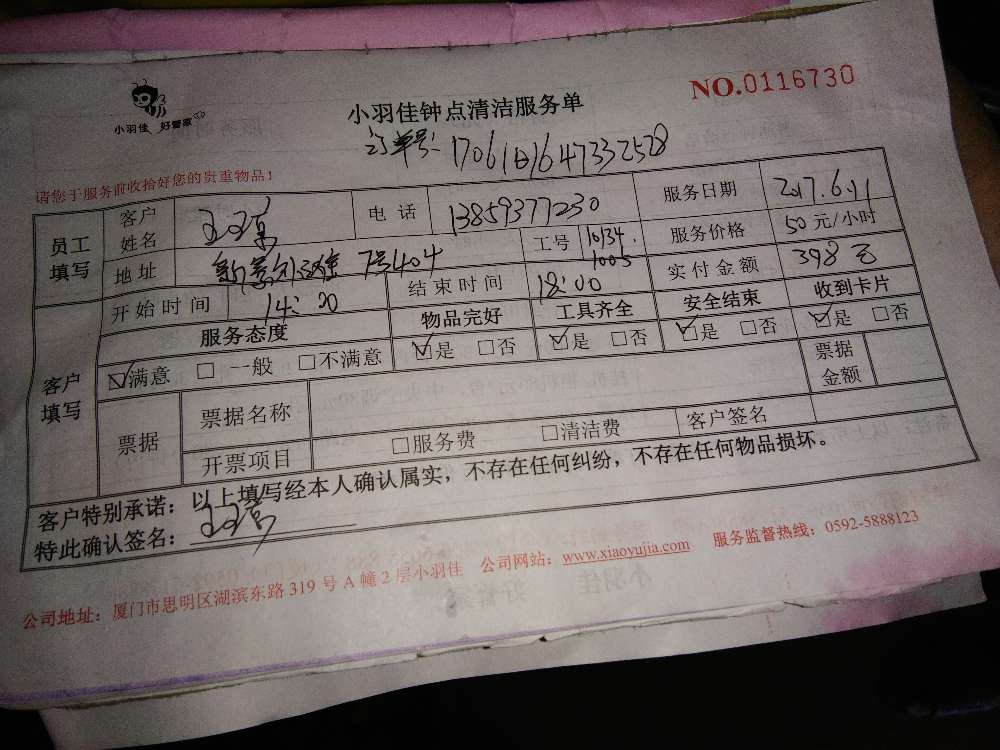 小羽佳 好管家
小羽佳钟点清洁服务单
NO.0116730
订单号:
请您于服务前收拾好您的贵重物品!
员工填写
客户姓名
电话 13859377230
服务日期 2017.6.11
地址 7号404
工号 10134. 1005
服务价格 50元/小时
开始时间 14:00
结束时间 18:00
实付金额 398元
客户填写
服务态度 物品完好 工具齐全 安全结束 收到卡片
☑满意 □一般 □不满意 ☑是 □否 ☑是 □否 ☑是 □否 ☑是 □否
票据
票据名称
票据金额
开票项目 □服务费 □清洁费 客户签名
客户特别承诺:以上填写经本人确认属实,不存在任何纠纷,不存在任何物品损坏。
特此确认签名:
公司地址:厦门市思明区湖滨东路319号A幢2层小羽佳 公司网站:www.xiaoyujia.com 服务监督热线:0592-5888123